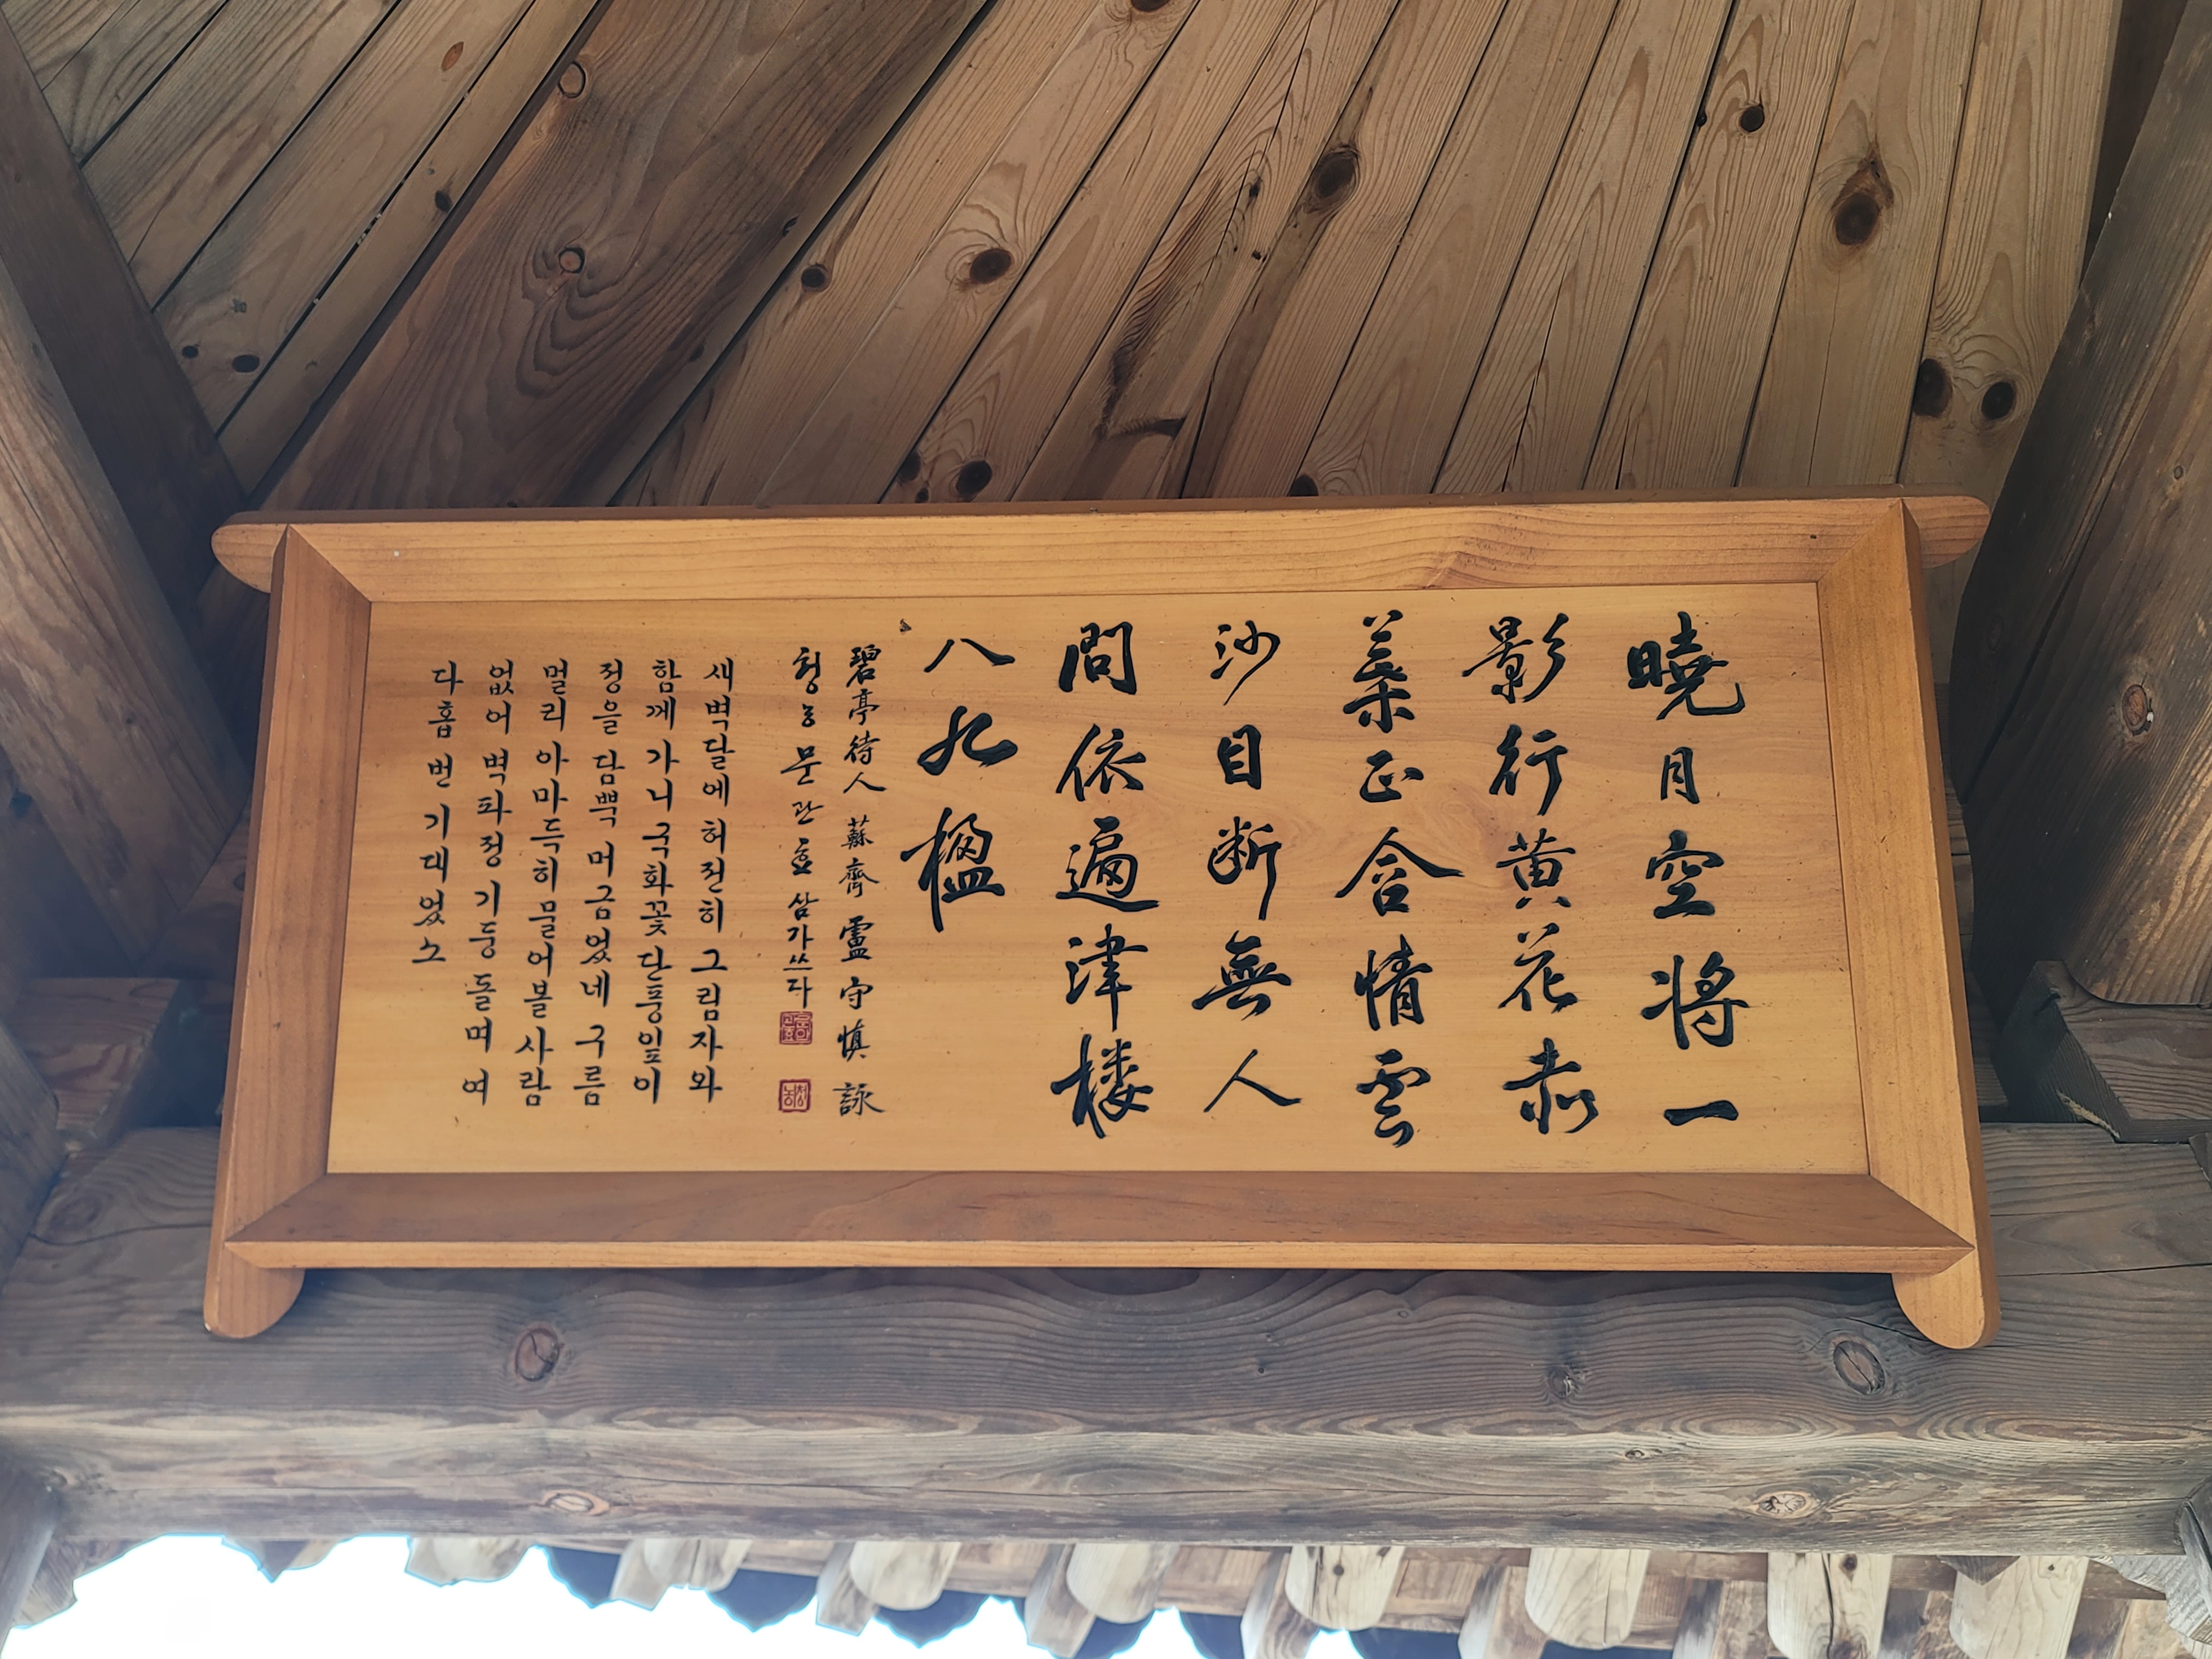 曉月空將一
影行黃花赤
葉正含情雲
沙目断無人
問依遍津楼
八九楹
碧亭待人 蘇齊 盧守愼 詠
청농 문관효 삼가쓰다
새벽달에 허전히 그림자와
함께 가니 국화꽃 단풍잎이
정을 담뿍 머금었네 구름
멀리 아마득히 물어볼 사람
없어 벽파정 기둥 돌며 여
다홉 번 기대었소